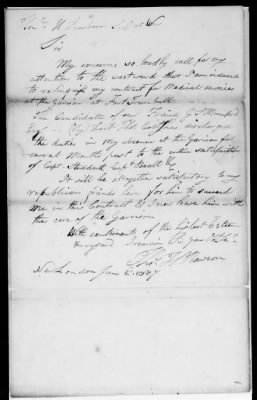 Sir
My concerns so loudly call for my
attention to the westward that I am induced
to relinquish my contract for Medical services
at the Garrison at Fort Trumbull
The Candidate of our Friend G
Esqr. Doct. Thos. has discharged
the duties in my absence at the Garrison for
several Months past to the entire satisfaction
of Capt Stoddard Capt &c
It will be altogether satisfactory to my
republican friends here for him to succeed
me in this Contract & I now leave him with
the care of the Garrison
With sentiments of the highest Esteem
& regard I remain
Thos. H Rawson
New London Jan 2. 1807